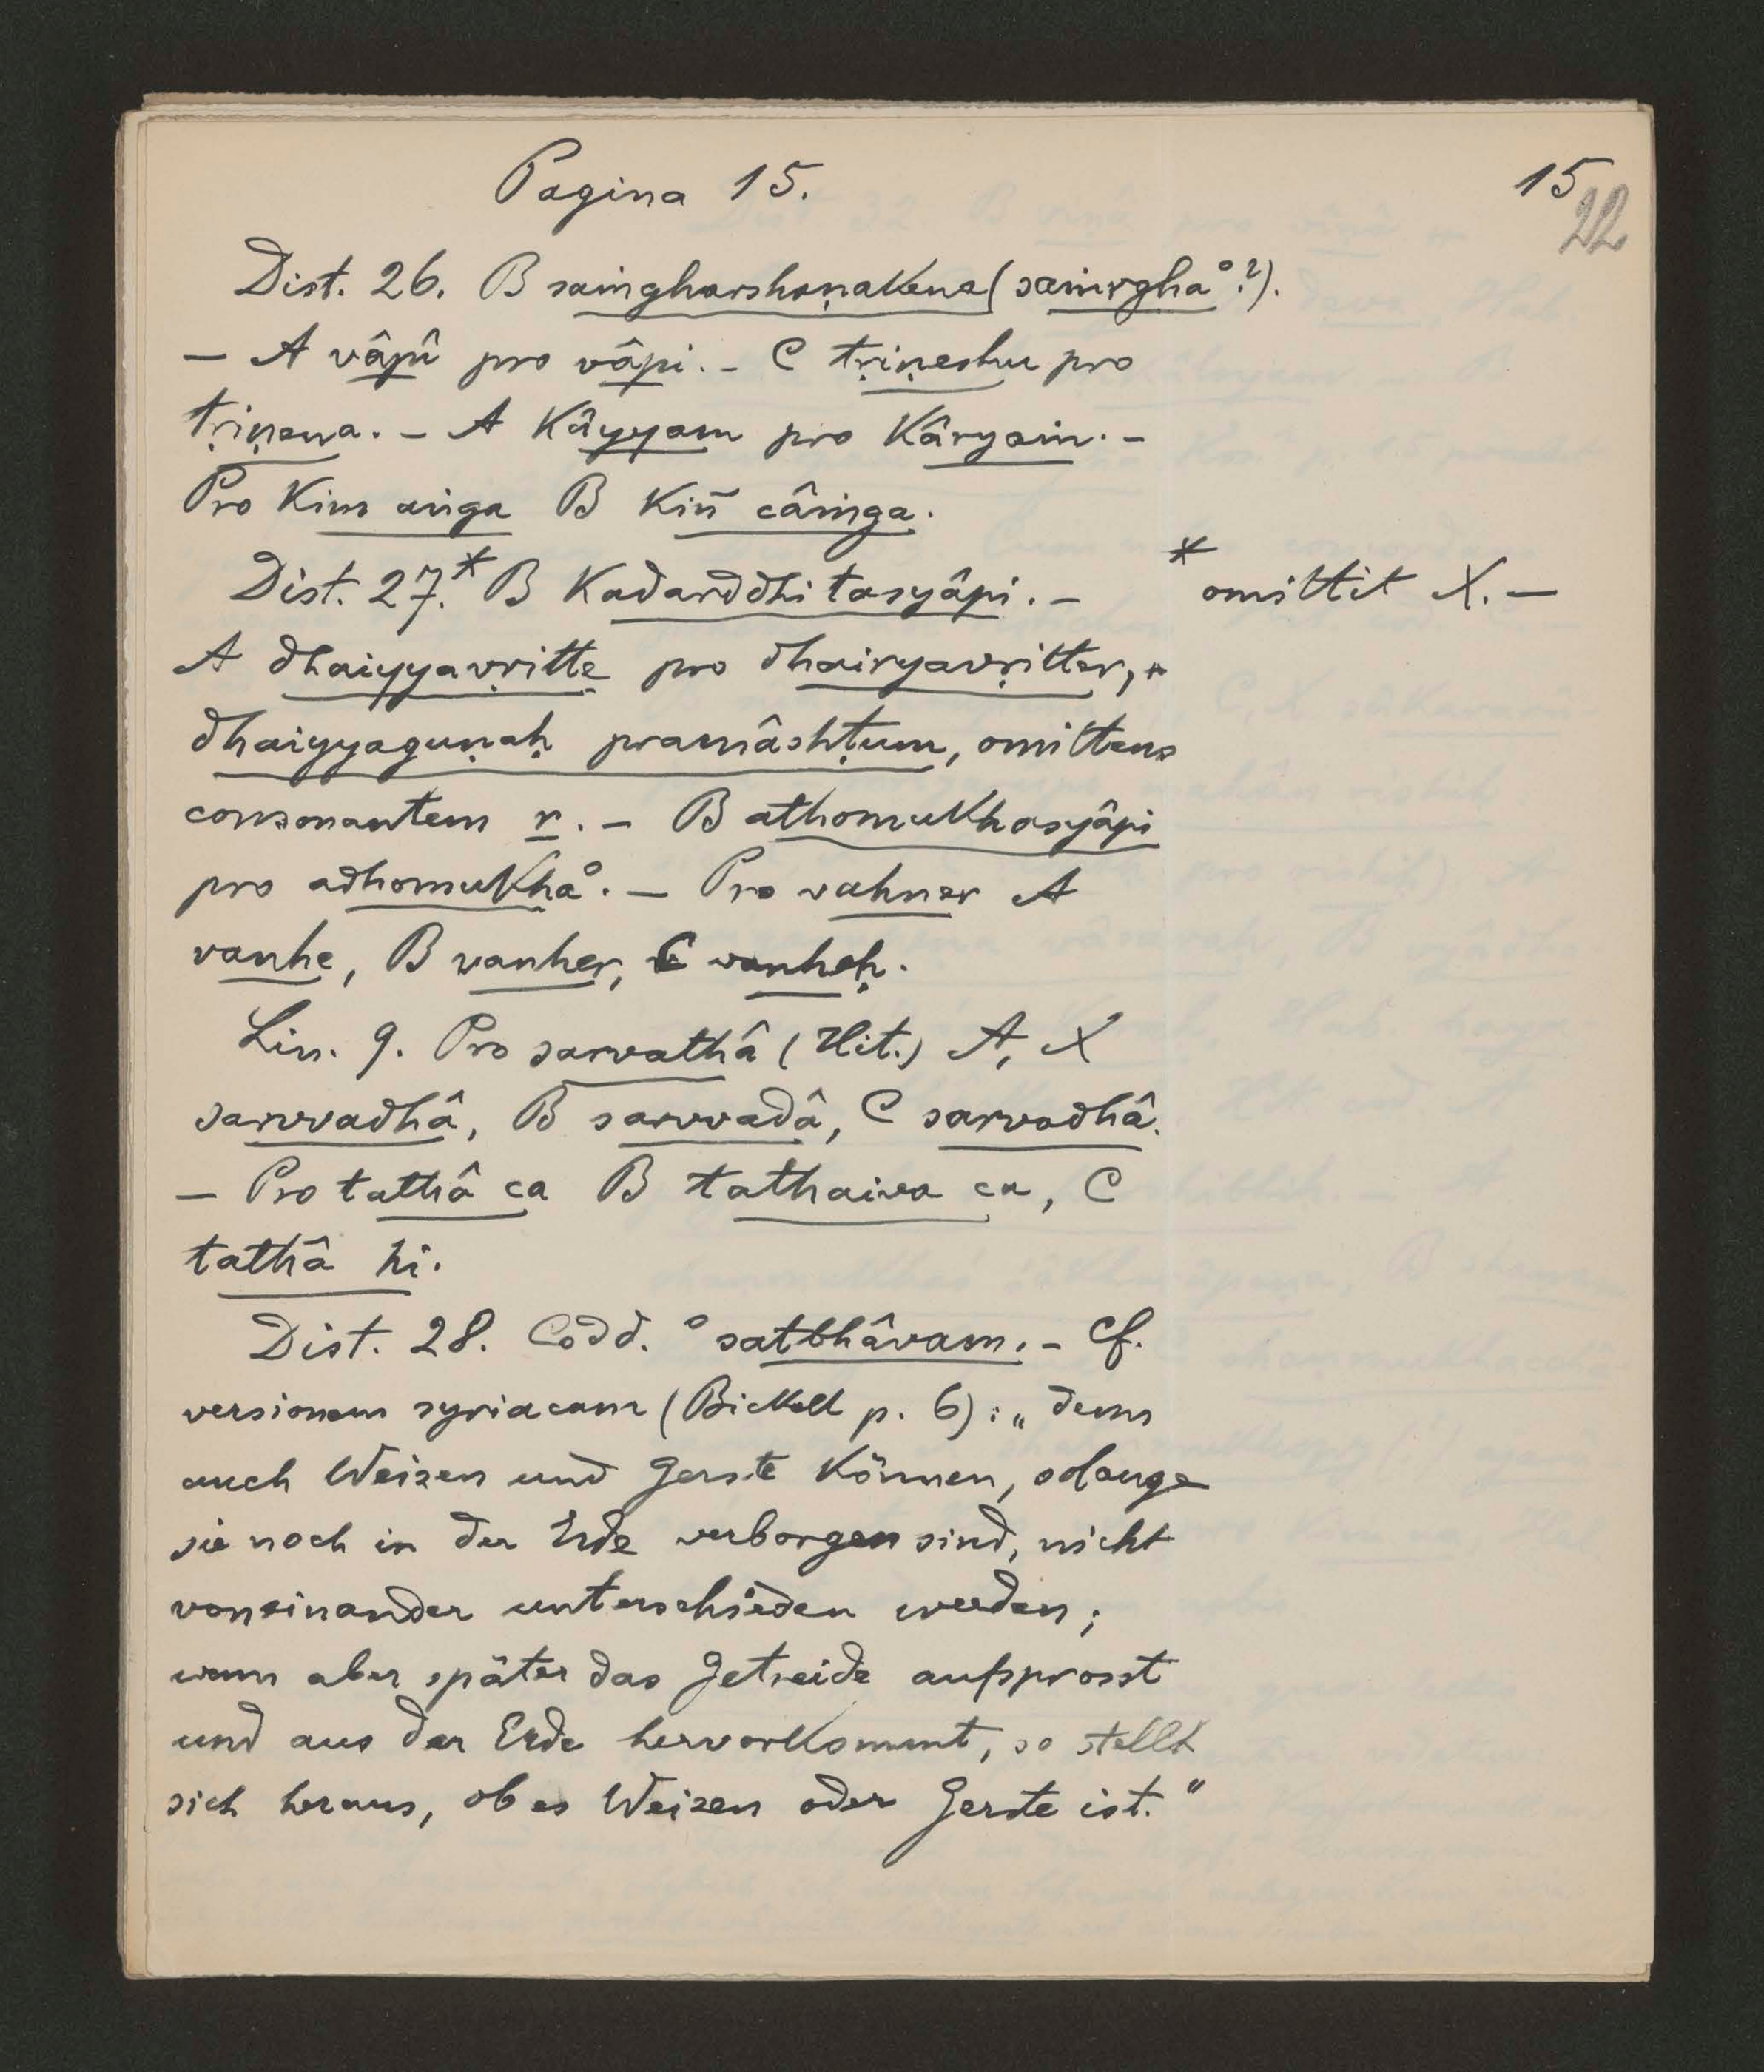 Pagina 15.
15
22
Dist. 26. B saṁgharshaṇakena (saṁrgha°?).
— A vâpû pro vâpi. – C tṛiṇeshu pro
tṛiṇena. – A kâyyam pro kâryaṁ. –
Pro kim aṅga B kiñ câṁga.
Dist. 27.* B kadarddhitasyâpi. –
* omittit X. —
A dhaiyyavṛitte pro dhairyavṛitter, +
dhaiyyaguṇaḥ pramâshṭum, omittens
consonantem r. – B athomukhasyâpi
pro adhomukha°. — Pro vahner A
vanhe, B vanher, C vanheḥ.
Lin. 9. Pro sarvathâ (Hit.) A, X
sarvvadhâ, B sarvvadâ, C sarvadhâ.
— Pro tathâ ca B tathaiva ca, C
tathâ hi.
Dist. 28. Codd. °satbhâvam. – Cf.
versionem syriacam (Bickell p. 6): „denn
auch Weizen und Gerste können, solange
sie noch in der Erde verborgen sind, nicht
voneinander unterschieden werden;
wenn aber später das Getreide aufsprosst
und aus der Erde hervorkommt, so stellt
sich heraus, ob es Weizen oder Gerste ist.“